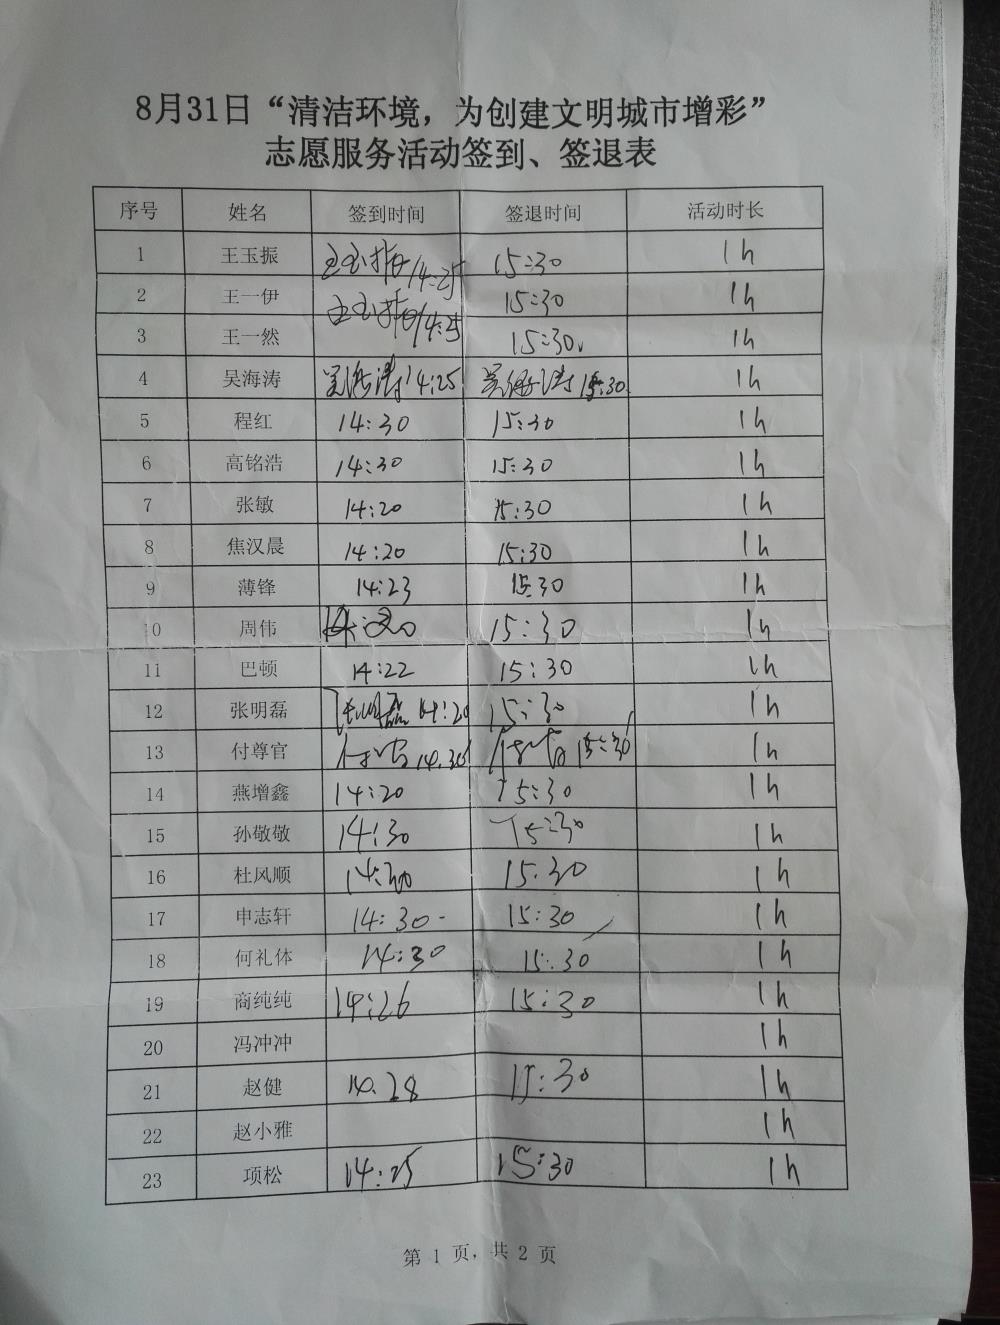 8月31日“清洁环境，为创建文明城市增彩”
志愿服务活动签到、签退表
序号 姓名 签到时间 签退时间 活动时长
1 王玉振 王玉振 14:25 15:30 1h
2 王一伊 王玉振 14:25 15:30 1h
3 王一然 15:30 1h
4 吴海涛 吴海涛 14:25 吴海涛 15:30 1h
5 程红 14:30 15:30 1h
6 高铭浩 14:30 15:30 1h
7 张敏 14:20 15:30 1h
8 焦汉晨 14:20 15:30 1h
9 薄锋 14:23 15:30 1h
10 周伟 14:20 15:30 1h
11 巴顿 14:22 15:30 1h
12 张明磊 张明磊 14:20 15:30 1h
13 付尊官 14:30 15:30 1h
14 燕增鑫 14:20 15:30 1h
15 孙敬敬 14:30 15:30 1h
16 杜风顺 14:30 15:30 1h
17 申志轩 14:30 15:30 1h
18 何礼体 14:30 15:30 1h
19 商纯纯 14:26 15:30 1h
20 冯冲冲 1h
21 赵健 14.28 15:30 1h
22 赵小雅 1h
23 项松 14:25 15:30 1h
第 1 页，共 2 页